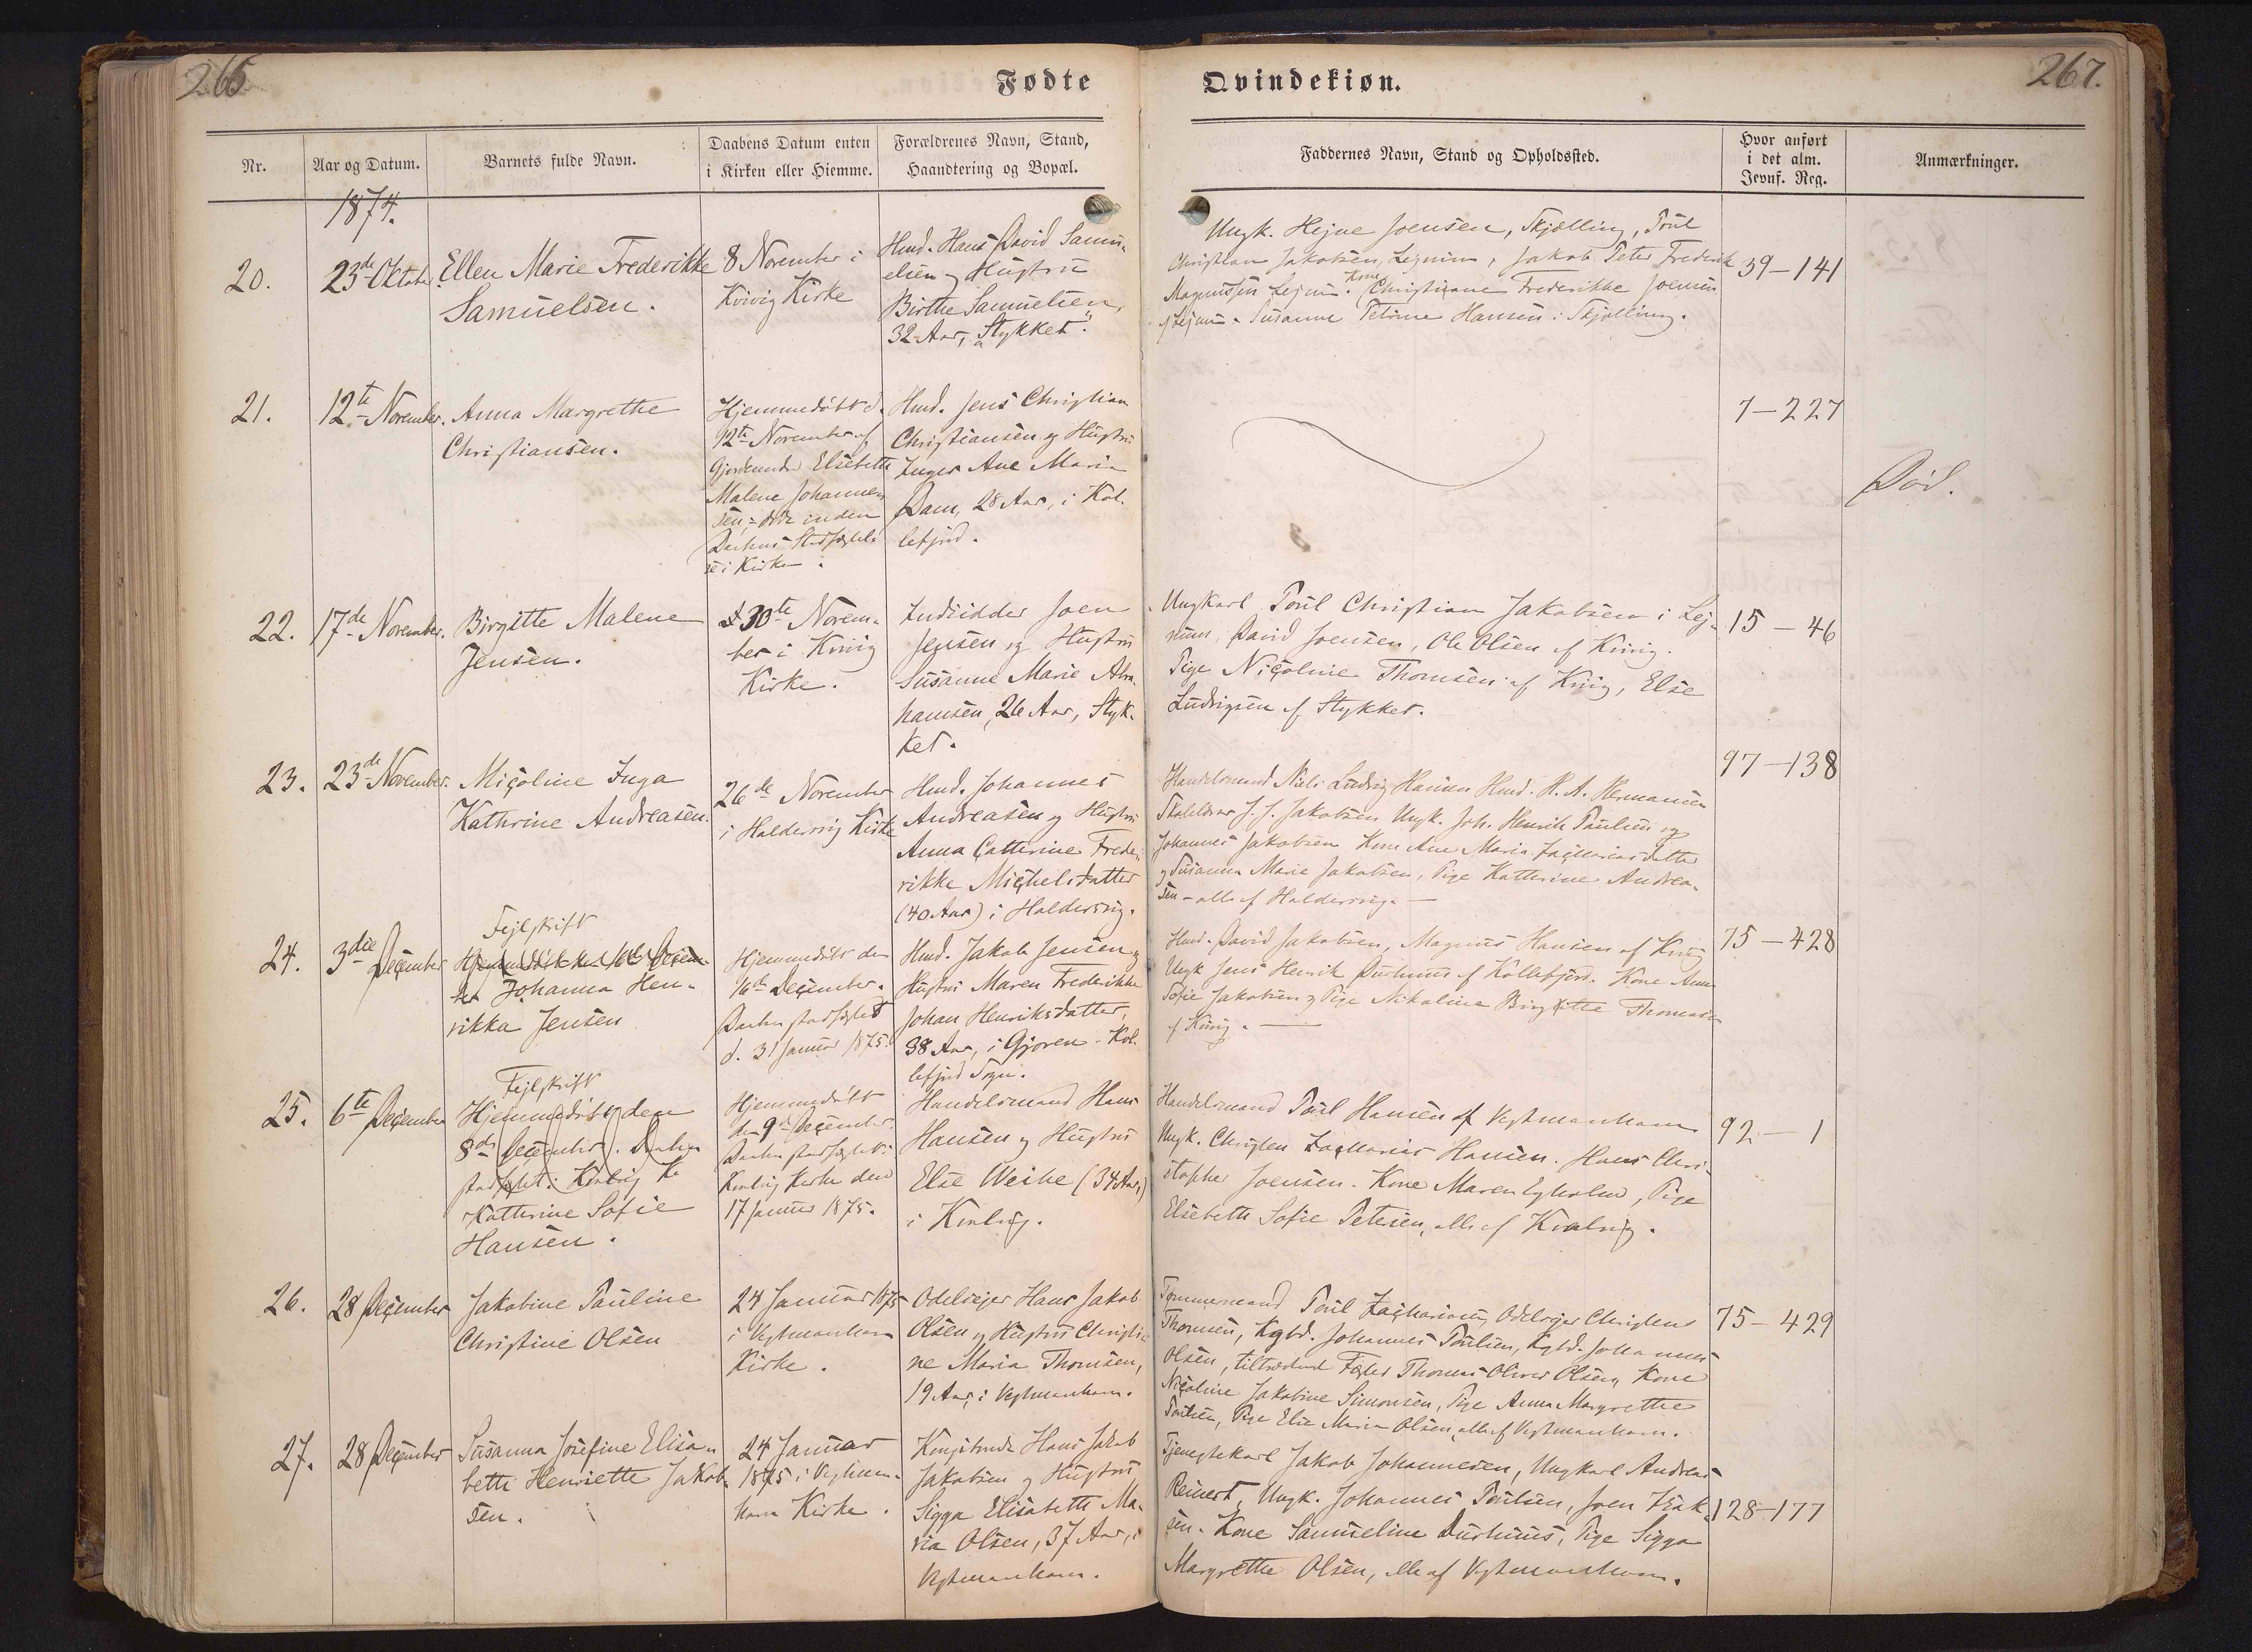 266
Fødte
Qvindekiøn.
267.
Nr.
Aar og Datum.
Barnets fulde Navn.
Daabens Datum enten
i Kirken eller Hiemme.
Forældrenes Navn, Stand,
Haandtering og Bopæl.
Faddernes Navn, Stand og Opholdssted.
Hvor anført
i det alm.
Jevnf. Reg.
Anmærkninger.
1874.
20.
23de Oktober.
Ellen Marie Frederikke
Samuelsen.
8 November i
Kvivig Kirke
Hmd. Hans David Samu-
elsen og Hustru
Birthe Samuelsen,
32 Aar, Stykket.
Ungk. Hejne Joensen, Skjælling, Poul
Christian Jakobsen, Lejnum, Jakob Peter Frederik
Magnussen Lejnum. Kone Christiane Frederikke Joensen
Lejnum. Susanne Petrine Hansen: Skjælling.
39-141
21.
12te November.
Anna Margrethe
Christiansen.
Hjemmedöbt d.
12te November af
Gjordemoder Elsebeth
Malene Johannes-
sen, - döde inden
Daabens Stadfæstel-
se i Kirken.
Hmd. Jens Christian
Christiansen og Hustru
Inger Ane Maria
Dam, 28 Aar, i Kol-
lefjord.
7-227
Död.
22.
17de November.
Birgitte Malene
Jensen.
d 30te Novem-
ber i Kvivig
Kirke.
Indsidder Joen
Jensen og Hustru
Susanne Marie Abra-
hamsen, 26 Aar, Styk-
ket.
Ungkarl Poul Christian Jakobsen i Lej-
num, David Joensen, Ole Olsen af Kvivig.
Pige Nicoline Thomsen af Kvivig, Else
Ludvigsen af Stykket.
15-46
23.
23de November.
Nicoline Inga
Kathrine Andreasen.
26de November
i Haldersvig Kirke
Hmd. Johannes
Andreasen og Hustru
Anna Catterine Frede-
rikke Michelsdatter
(40 Aar) i Haldersvig.
Handelsmand Niels Ludvig Hansen Hmd. H. A. Hermansen
Skolelærer J. J. Jakobsen Ungk. Joh. Henrik Poulsen og
Johannes Jakobsen Kone Ane Maria Zachariasdatter
og Susanna Marie Jakobsen, Pige Katherine Andrea-
sen - alle af Haldersvig.
97-138
24.
3die December
Fejlskrift
Hjemmedöbt den 16de Decem-
ber Johanna Hen-
rikka Jensen
Hjemmedöbt den
16de December.
Daaben stadfæstet
d. 31 Januar 1875.
Hmd. Jakob Jensen og
Hustru Maren Frederikke
Johan Henriksdatter,
38 Aar, i Gjoven - Kol-
lefjord Sogn.
Hmd. David Jakobsen, Magnus Hansen af Kvivig
Ungk Jens Henrik Durhuus af Kollefjord. Kone Anne
Sofie Jakobsen og Pige Nikoline Birgitte Thomsen
af Kvivig.
75-428
25.
6te December
Fejlskrift
Hjemmedöbt den
8de December. Daaben
stadfæstet: Kvalvig K
Kathrine Sofie
Hansen.
Hjemmedöbt
den 9de December.
Daaben stadfæstet i
Kvalvig Kirke den
17 Januar 1875.
Handelsmand Hans
Hansen og Hustru
Else Weihe (34 Aar)
i Kvalvig.
Handelsmand Poul Hansen af Vestmanhavn
Ungk. Christen Zacharias Hansen. Hans Chri-
stopher Joensen. Kone Maren Egholm, Pige
Elsebeth Sofie Petersen, alle af Kvalvig.
92-1
26.
28 December
Jakobine Pauline
Christine Olsen
24 Januar 1875
i Vestmanhavn
Kirke.
Odelsejer Hans Jakob
Olsen og Hustru Christi-
ne Maria Thomsen,
19 Aar, i Vestmanhavn.
Tömmermand Poul Zachariasen, Odelsejer Christen
Thomsen, Kgbd. Johannes Poulsen, Kgbd. Johannes
Olsen, tiltrædende Fæster Thomas Oliver Olsen, Kone
Nicoline Jakobine Simonsen, Pige Anna Margrethe
Poulsen, Pige Else Maria Olsen, alle af Vestmanhavn.
75-429
27.
28 December
Susanna Josefine Elisa-
beth Henriette Jakob-
sen.
24 Januar
1875 i Vestman-
havn Kirke.
Kongsbonde Hans Jakob
Jakobsen og Hustru
Sigga Elisabeth Ma-
ria Olsen, 37 Aar, i
Vestmanhavn.
Tjenestekarl Jakob Johannesen, Ungkarl Andreas
Reinert, Ungk. Johannes Poulsen, Joen Isak-
sen. Kone Samueline Durhuus, Pige Sigga
Margrethe Olsen, alle af Vestmanhavn.
128-177